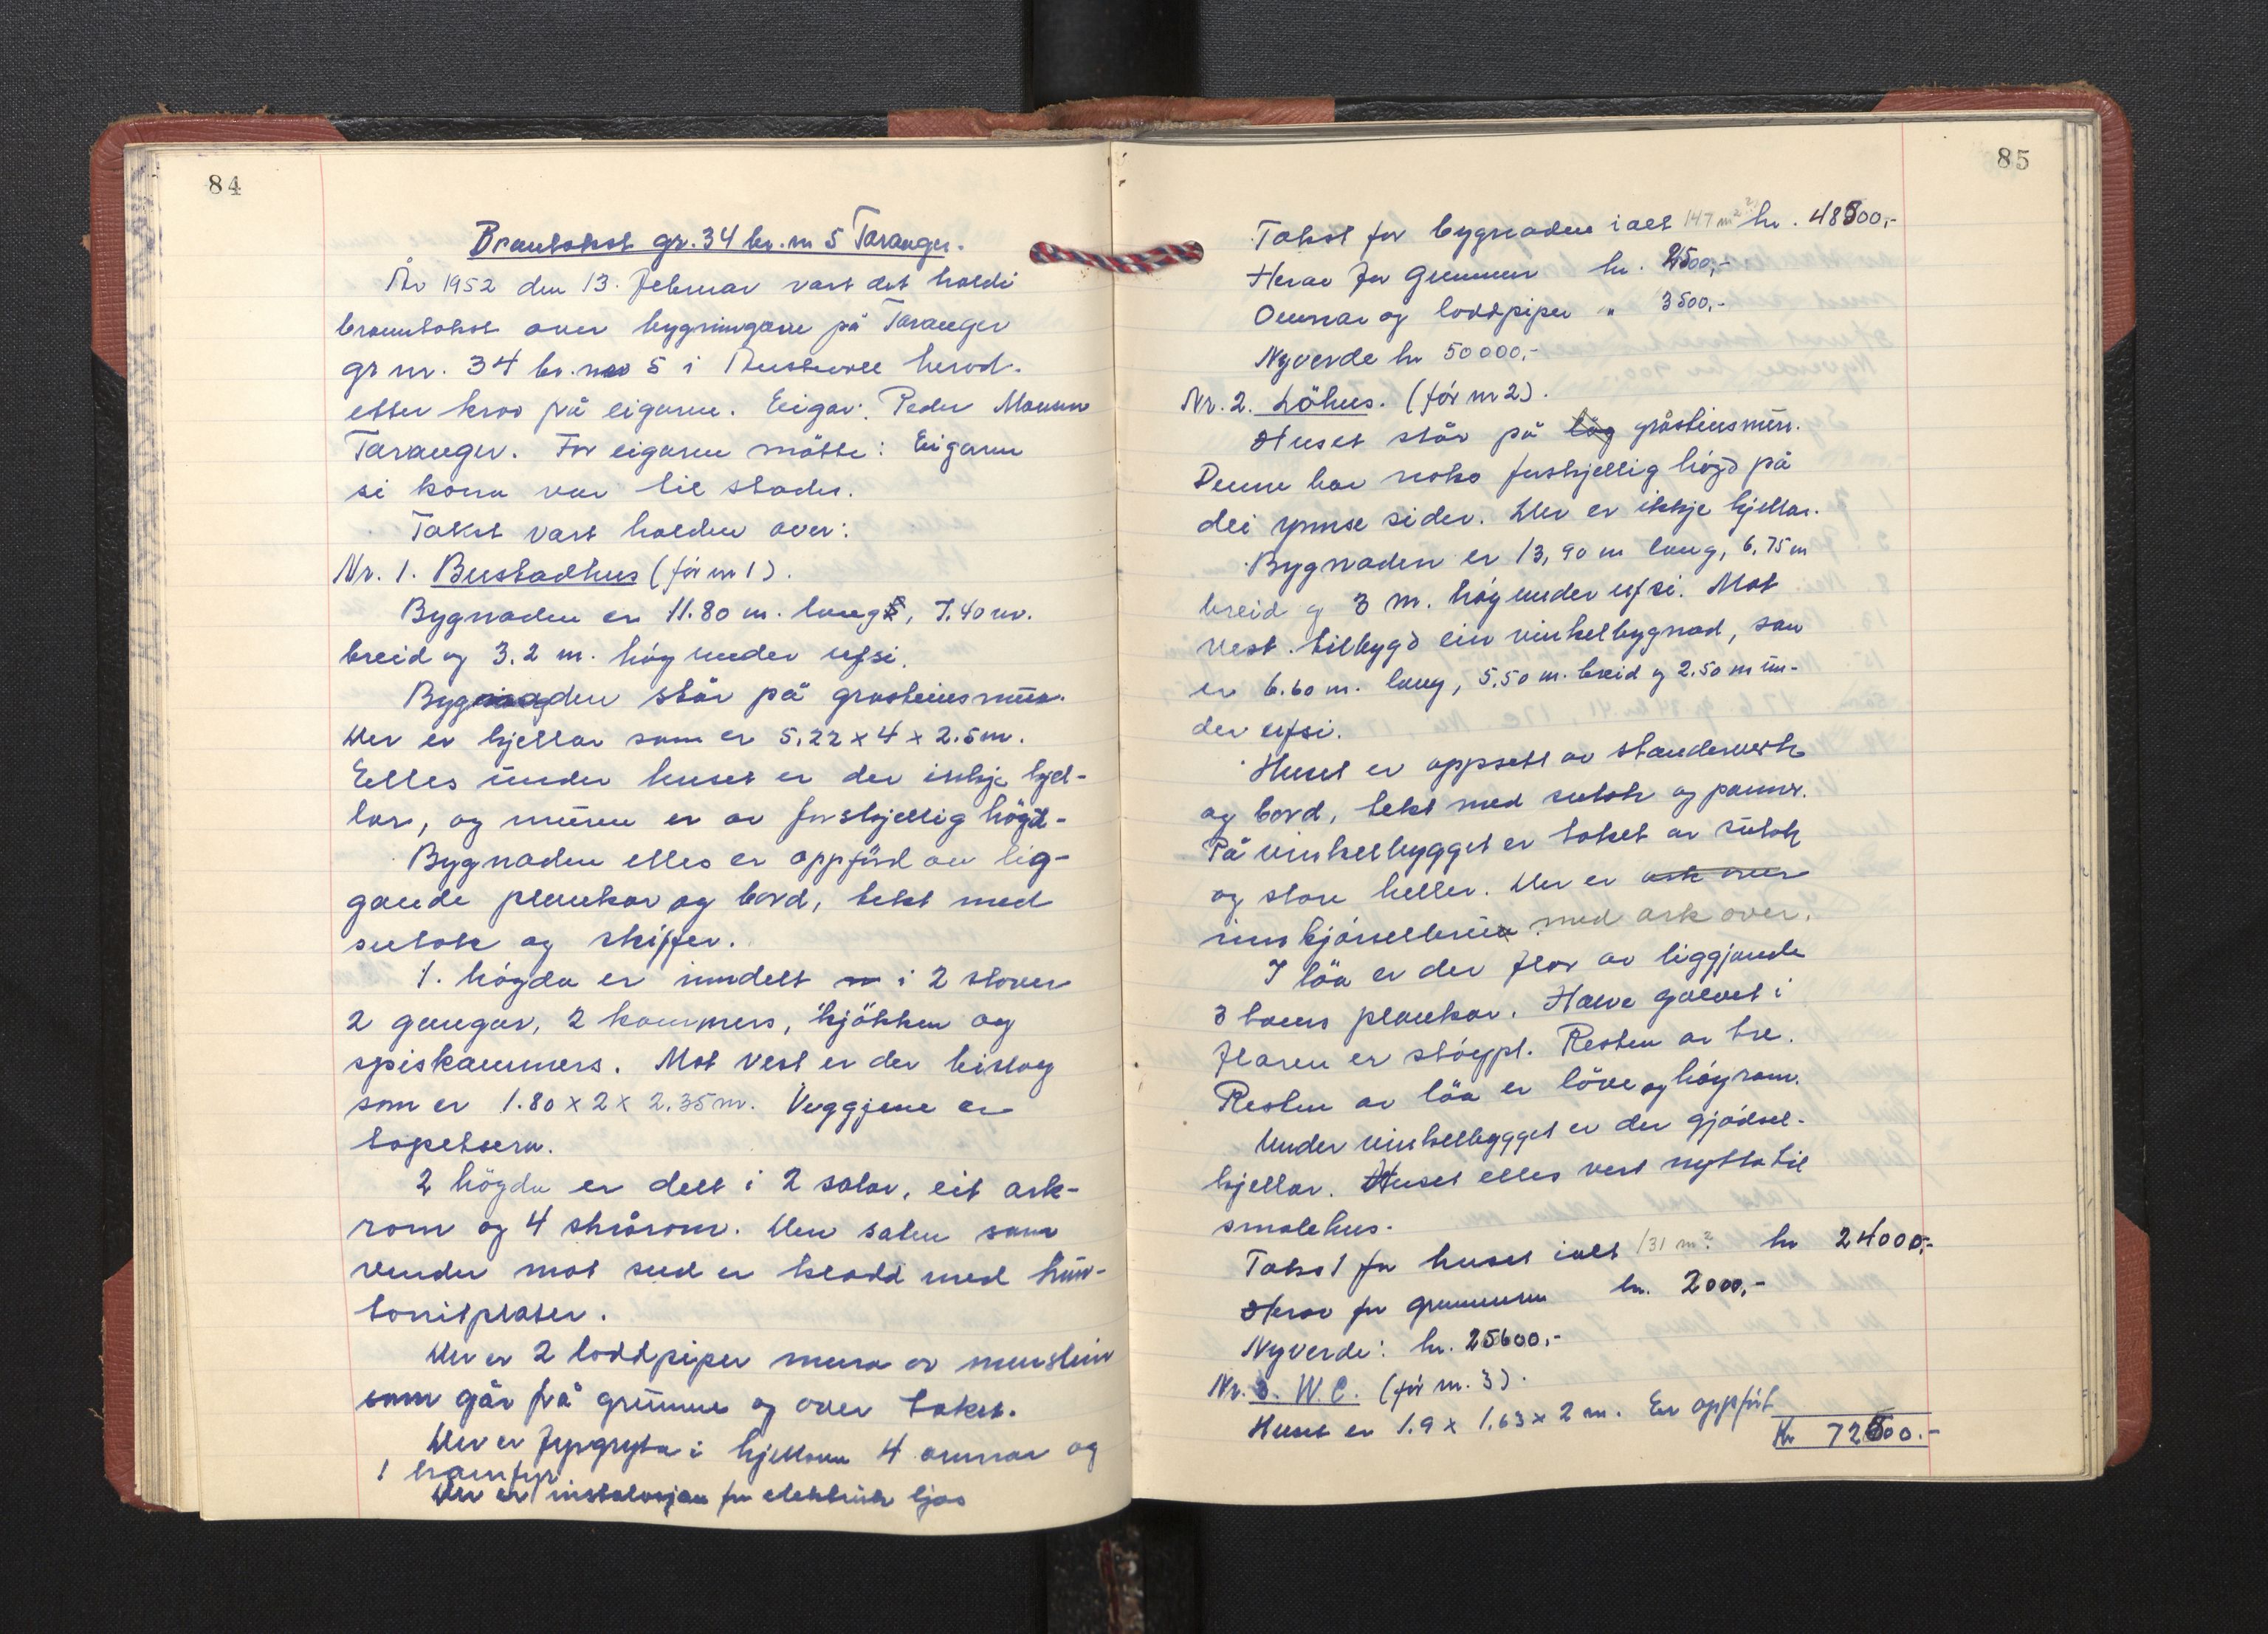 84
Branntakst gr. 34 br. nr 5 Taranger.
År 1952 den 13. februar vart det haldi
branntakst over bygningane på Taranger
gr nr. 34 br. nr 5 i Austevoll herad.
etter krav på eigaren. Eigar: Peder Monsen
Taranger. For eigaren møtte: Eigaren
si kona var til stades.
Takst vart halden over:
Nr. 1. Bustadhus (før nr 1).
Bygnaden er 11.80 m. lang, 7.40 m.
breid og 3.2 m. høg under ufsi.
Bygnaden står på gråsteinsmur.
Der er kjellar som er 5.22 x 4 x 2.5 m.
Elles under huset er der inkje kjel-
lar, og muren er av forskjellig høgd.
Bygnaden elles er oppførd av lig-
gande plankar og bord, tekt med
sutak og skiffer.
1. høgda er inndelt i 2 stover
2 gangar, 2 kammers, kjøkken og
spiskammers. Mot vest er der bislag
som er 1.80 x 2 x 2.35 m. Veggjene er
tapetsera.
2 høgda er delt i 2 salar, eit ark-
rom og 4 skrårom. Den salen som
vender mot sud er kledd med hun-
tonitplater.
Der er 2 loddpiper mura av murstein
som går frå grunnen og over taket.
Der er fyrgryta i kjellaren 4 omnar og
1 kamfyr
Der er instalasjon for elektrisk ljos
85
Takst for bygnaden i alt 147 m² kr. 48500,-
Herav for grunnen kr. 2500,-
Omnar og loddpiper " 3500,-
Nyverde kr 50000.-
Nr. 2. Löhus. (før nr 2).
Huset står på låg gråsteinsmur.
Denne har noko forskjellig høgd på
dei ymse sider. Der er ikkje kjellar.
Bygnaden er 13,90 m lang, 6.75 m
breid og 3 m. høg under ufsi. Mot
vest tilbygd ein vinkelbygnad, som
er 6.60 m. lang, 5.50 m. breid og 2.50 m un-
der ufsi.
Huset er oppsett av standerverk
og bord, tekt med sutak og pannr.
På vinkelbygget er taket av sutak
og store heller. Der er ark over
innkjörselbrua med ark over.
I löa er der flor av liggjande
3 toms plankar. Halve golvet i
floren er støypt. Resten av tre.
Resten av löa er löve og høyrom.
Under vinkelbygget er der gjødsel-
kjellar. Huset elles vert nytta til
smalehus.
Takst for huset i alt 131 m² kr 24000,-
Herav for grunnmuren kr. 2000,-
Nyverde: kr. 25600.-
Nr. 3. W.C. (før nr. 3).
Huset er 1.9 x 1.63 x 2 m. Er oppført
Kr 72500.-